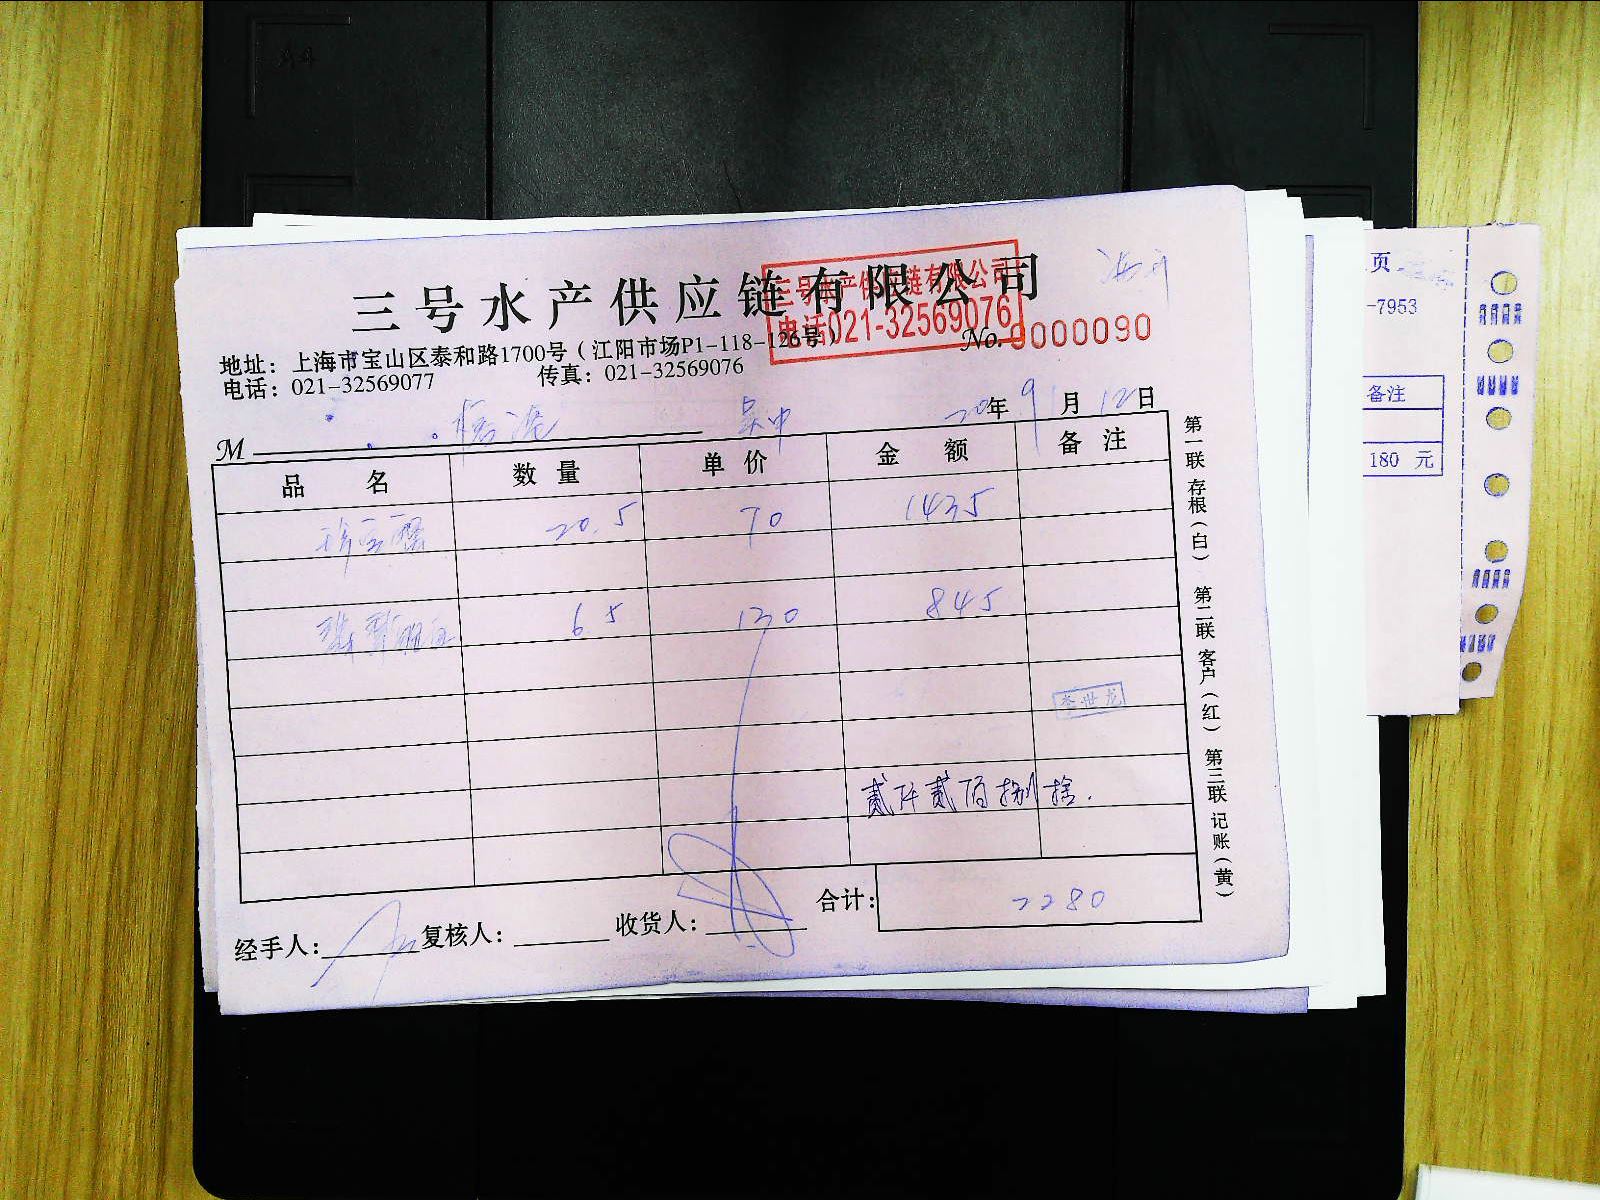 三号水产供应链有限公司
三号水产供应链有限公司
电话021-32569076
地址：上海市宝山区泰和路1700号（江阳市场P1-118-126号）
No. 0000090
电话：021-32569077 传真：021-32569076
M 吴中 20年9月12日
品名 数量 单价 金额 备注
20.5 70 1435
6.5 130 845
李世龙
贰仟贰佰捌拾.
合计： 2280
经手人： 复核人： 收货人：
第一联 存根（白） 第二联 客户（红） 第三联 记账（黄）
页
-7953
备注
180 元